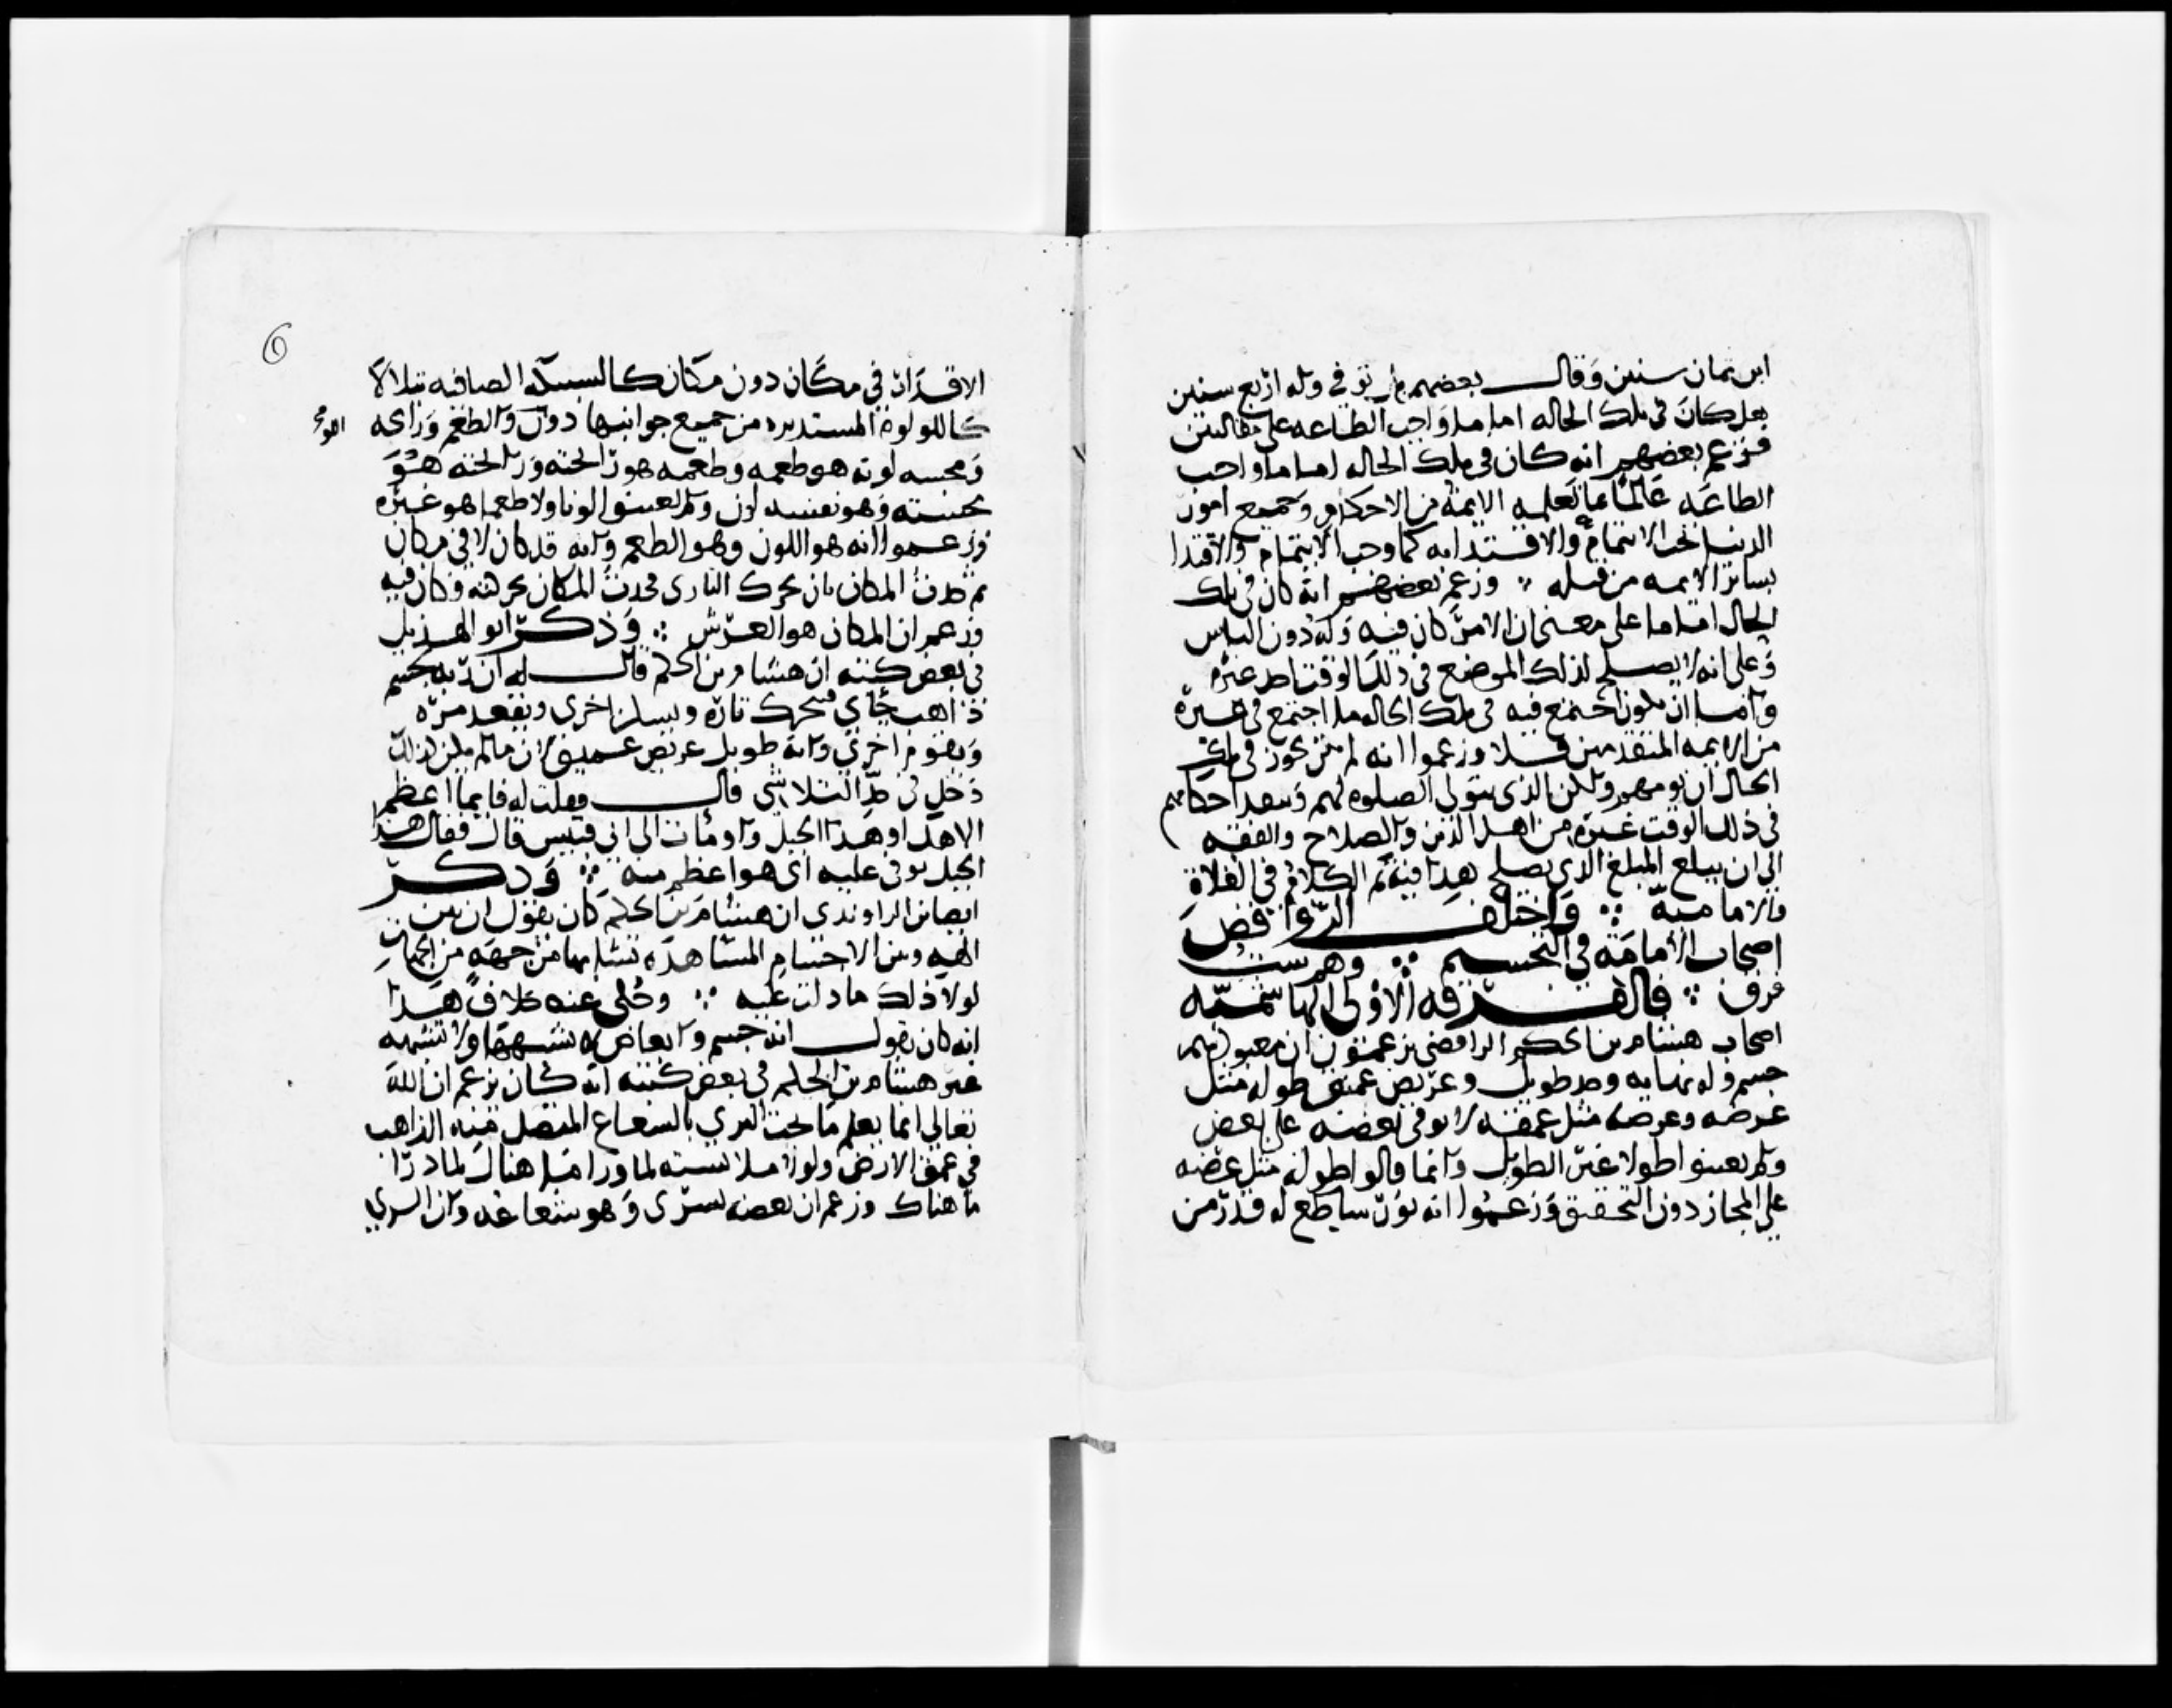 ابن ثمان سنين وقال بعضهم بل توفي وله اربع سنين
هل كان في تلك الحاله اماما واجب الطاعه على مقالتين
فزعم بعضهم انه كان في تلك الحال اماما واجب
الطاعه عالما بما تعلمه الايمة من الاحكام وجميع امور
الدنيا يجب الايتمام والاقتدا به كما وجب الايتمام والاقتدا
بسائر الايمه من قبله ∴ وزعم بعضهم انه كان في تلك
الحال اماما على معنى ان الامر كان فيه وله دون الناس
وعلى انه لا يصلح لذلك الموضع في ذلك الوقت احد غيره
واما ان يكون اجتمع فيه في تلك الحاله ما اجتمع في غيره
من الايمه المتقدمين فلا وزعموا انه لم يكن يجوز في تلك
الحال ان يومهم ولكن الذي يتولى الصلوه لهم وينفد احكامهم
في ذلك الوقت غيره من اهل الدين والصلاح والفقه
الى ان يبلغ المبلغ الذي يصلح هذا فيه تم الكلام في الغلاة
والاماميه ∴ واختلف الروافض
اصحاب الامامة في التجسيم ∴ وهم ست
فرق ∴ فالفرقه الاولى الهاشميه
اصحاب هشام بن الحكم الرافضي يزعمون ان معبودهم
جسم وله نهايه وحد طويل وعريض عميق طوله مثل
عرضه وعرضه مثل عمقه لا يوفي بعضه على بعض
ولم يعينوا طولا غير الطويل وانما قالوا طوله مثل عرضه
على المجاز دون التحقيق وزعموا انه نور ساطع له قدر من
6
الاقدار في مكان دون مكان كالسبيكه الصافيه يتلالا
كاللولوة المستديره من جميع جوانبها دون والطعم ورايحه
ومجسه لونه هو طعمه وطعمه هو رائحته ورائحته هو
مجسته وهو نفسه لون ولم يعينوا لونا ولا طعما هو غيره
وزعموا انه هو اللون وهو الطعم وانه قد كان لا في مكان
ثم حدث المكان بان تحرك الباري فحدث المكان بحركته وكان فيه
وزعم ان المكان هو العرش ∴ وذكر ابو الهذيل
في بعض كتبه ان هشام بن الحكم قال له ان ربه جسم
ذاهب جاي فيتحرك تارة ويسكن اخرى ويقعد مرة
ويقوم اخرى وانه طويل عريض عميق لان ما لم يكن كذلك
دخل في حد التلاشي قال فقلت له فايما اعظم
الاهك او هذا الجبل واومات الى ابي قبيس قال فقال هذا
الجبل يوفي عليه اي هو اعظم منه ∴ وذكر
ايضا ابن الراوندي ان هشام بن الحكم كان يقول ان بين
الهه وبين الاجسام المشاهدة تشابها من جهة من الجهات
لولا ذلك ما دلت عليه ∴ وحكى عنه خلاف هذا
انه كان يقول انه جسم وابعاض لا يشبهها ولا تشبهه
غير هشام بن الحكم في بعض كتبه انه كان يزعم ان الله
تعالى انما يعلم ما تحت الثري بالشعاع المتصل منه الذاهب
في عمق الارض ولولا ملابسته لما ورا ما هناك لما درا
ما هناك وزعم ان بعضه يسرى وهو شعاعه وان الثري